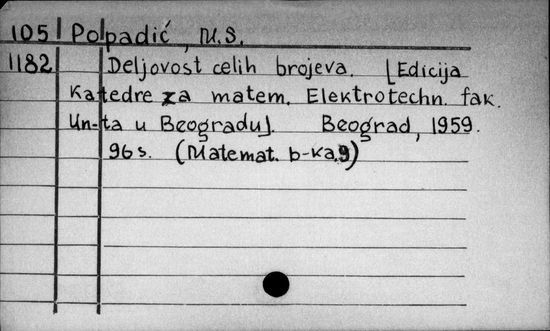 105 Polpadić, M.S.
1182 Deljovost celih brojeva. [Edicija
Katedre za matem. Elektrotechn. fak.
Un-ta u Beogradu]. Beograd, 1959.
96 s. (Matemat. b-ka, 9)